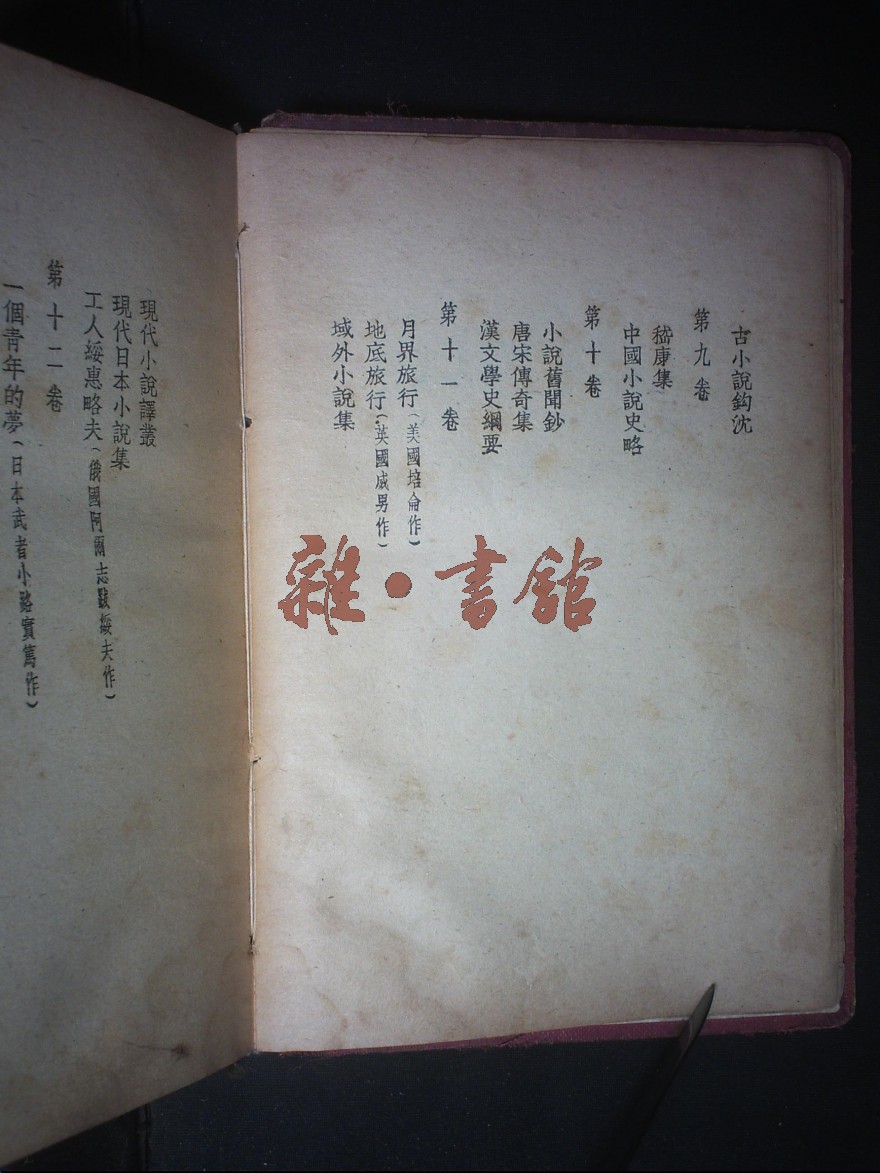 古小說鈎沈
第九卷
嵇康集
中國小說史略
第十卷
小說舊聞鈔
唐宋傳奇集
漢文學史綱要
第十一卷
月界旅行（美國培侖作）
地底旅行（英國威男作）
域外小說集
現代小說譯叢
現代日本小說集
工人綏惠略夫（俄國阿爾志跋綏夫作）
第十二卷
一個青年的夢（日本武者小路實篤作）
雜·書館